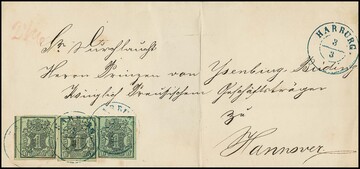 HARBURG.
3
3
Sr. Durchlaucht
Herrn Prinzen von Ysenburg-Büdingen
Königlich Preußischem Geschäftsträger
zu
Hannover
1 1 1